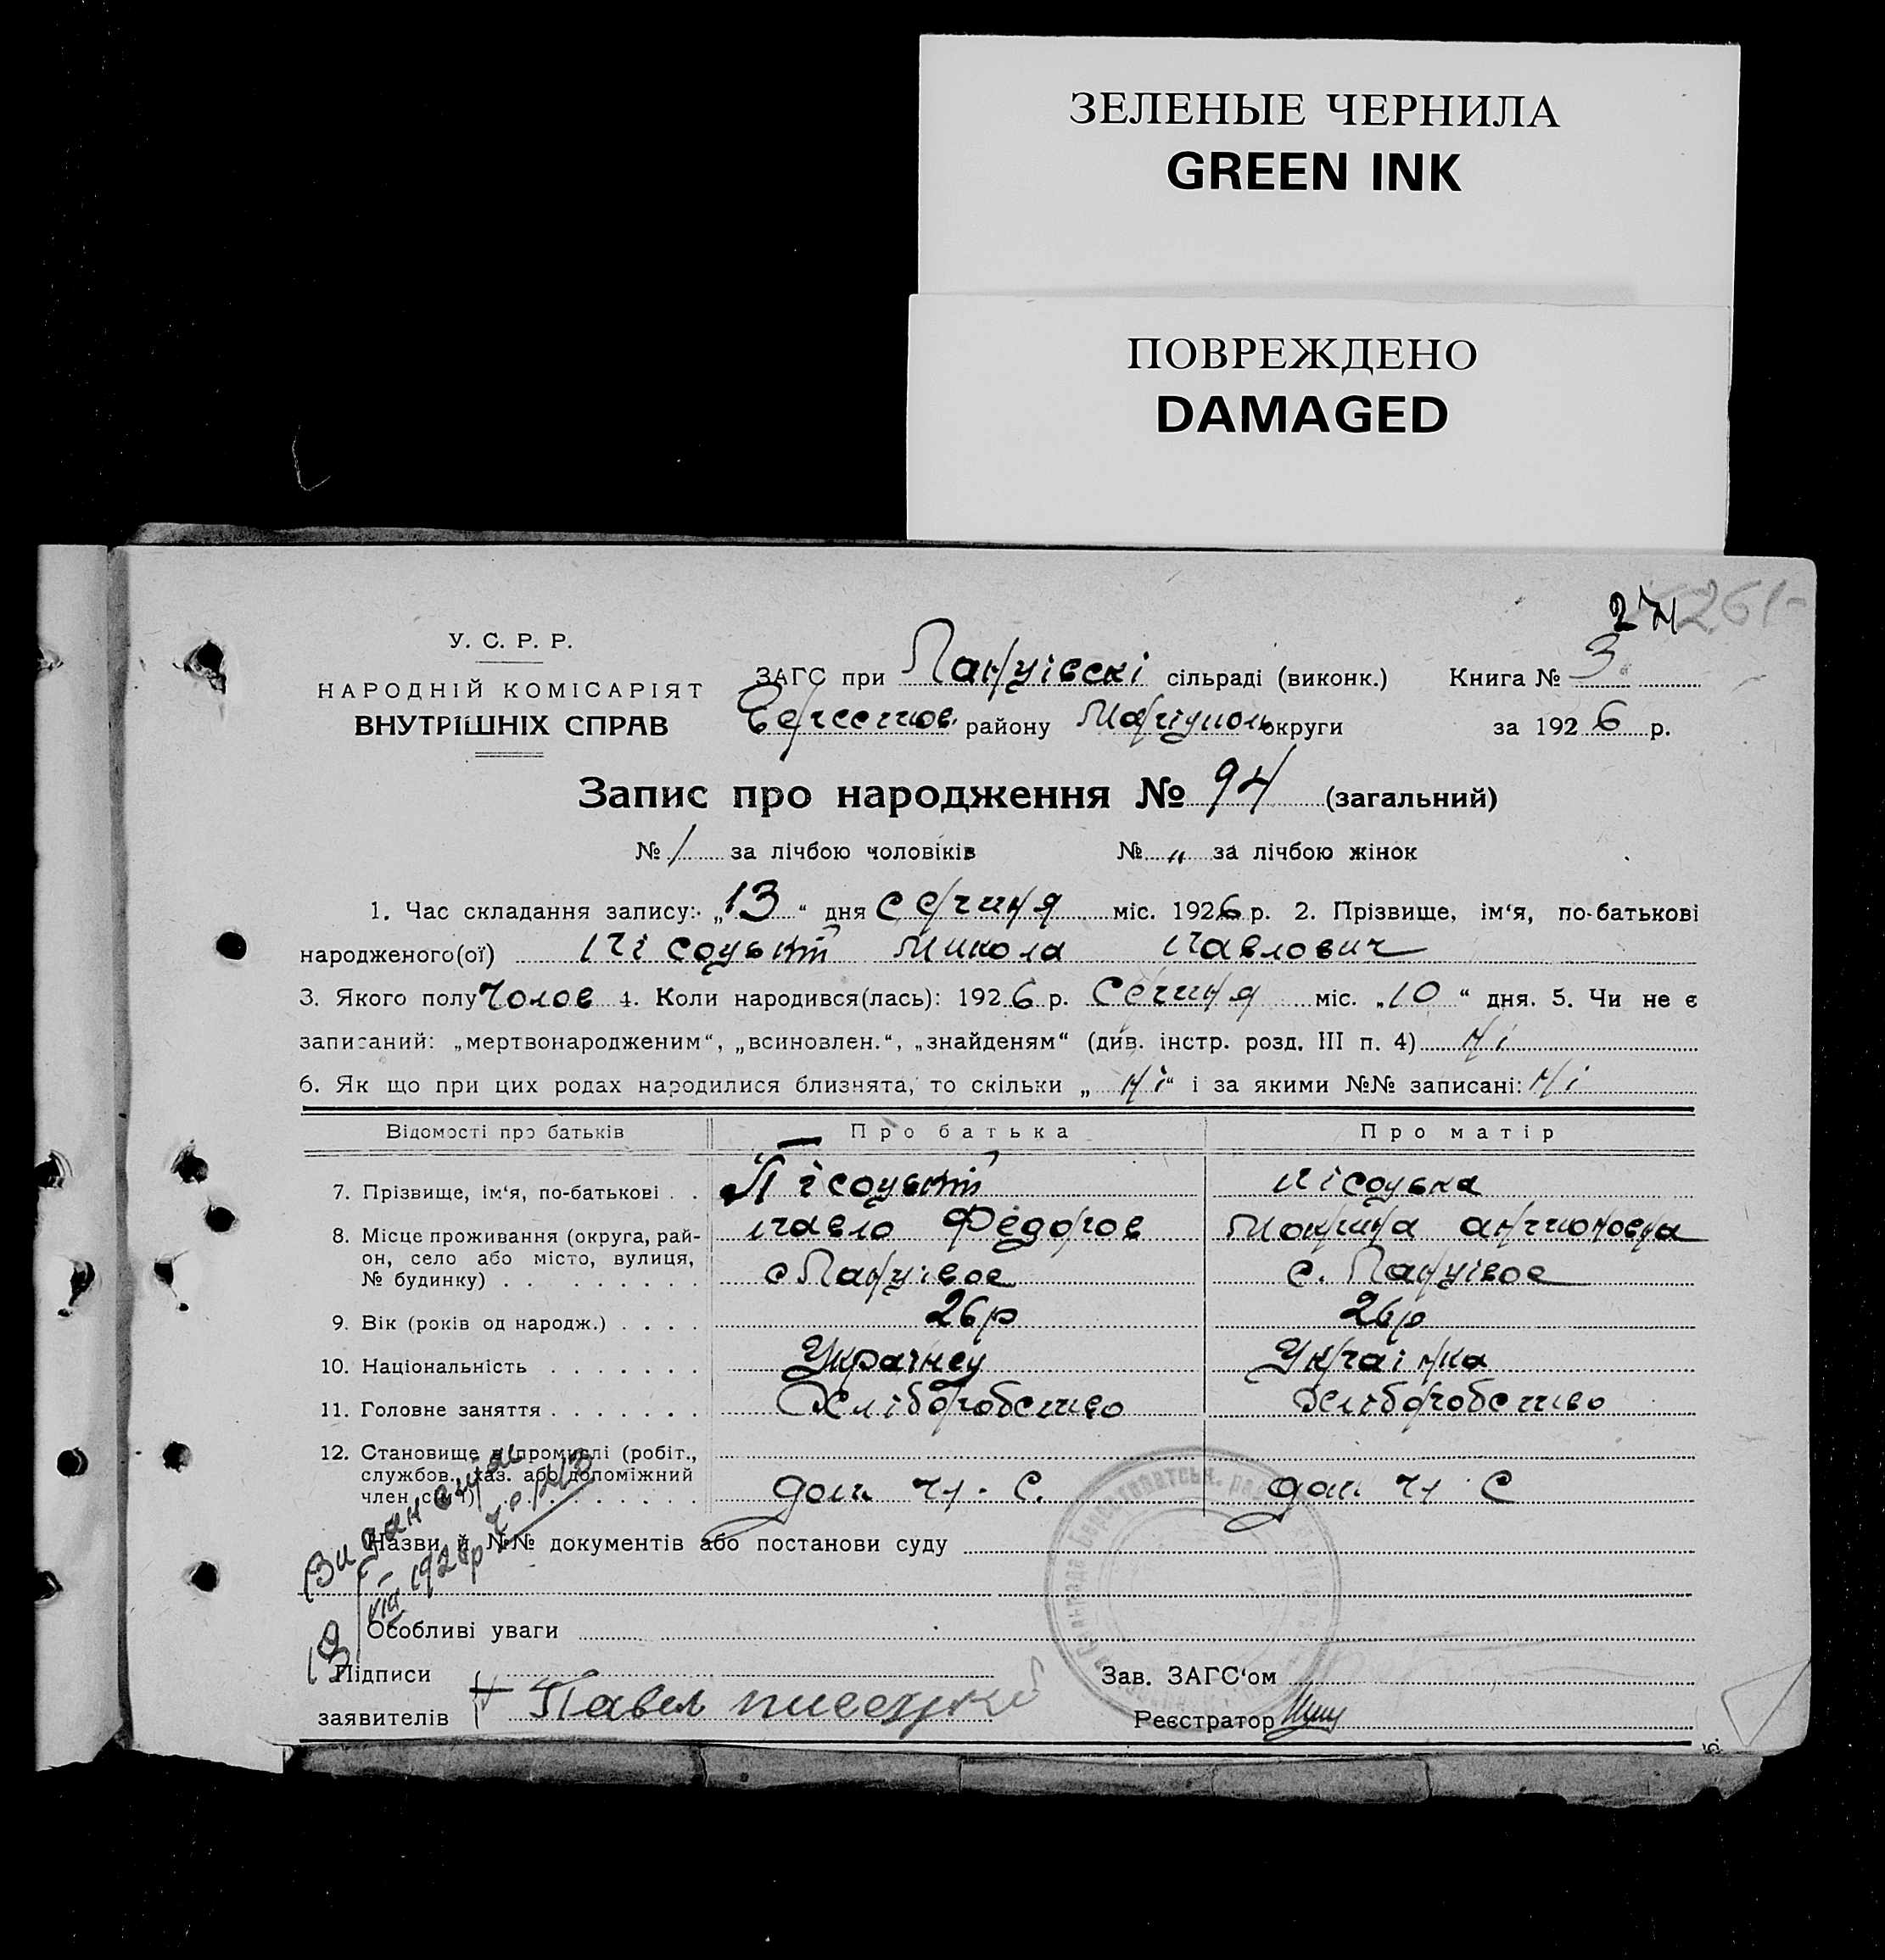 ЗЕЛЕНЫЕ ЧЕРНИЛА
GREEN INK
ПОВРЕЖДЕНО
DAMAGED
261
274
У. С. Р. Р.
НАРОДНІЙ КОМІСАРІЯТ
ВНУТРІШНІХ СПРАВ
ЗАГС при сільраді (виконк.) Книга № 3
району Маріупол округи за 1926 р.
Запис про народження № 94 (загальний)
№ 1 за лічбою чоловіків № „ за лічбою жінок
1. Час складання запису: „13“ дня серпня міс. 1926 р. 2. Прізвище, ім‘я, по-батькові
народженого(ої) Пісоцькій Микола Павлович
3. Якого полу Чолов 4. Коли народився(лась): 1926 р. Серпня міс. „10“ дня. 5. Чи не є
записаний: „мертвонародженим“, „всиновлен.“, „знайденям“ (див. інстр. розд. III п. 4) Ні
6. Як що при цих родах народилися близнята, то скільки „Ні“ і за якими №№ записані: Ні
Відомості про батьків Про батька Про матір
7. Прізвище, ім‘я, по-батькові . . Пісоцькій Пісоцька
Павло Фёдоров
8. Місце проживання (округа, рай-
он, село або місто, вулиця,
№ будинку) . . . . . . . . . с с.
9. Вік (років од народж.) . . . . 26р 26р
10. Національність . . . . . . . Украінец Украінка
11. Головне заняття . . . . . . . Хліборобство Хліборобство
12. Становище в промислі (робіт.,
службов., хаз. або допоміжний
член сім‘ї) . . . . . . . . . доп. ч. С. доп. ч. С
Назви й №№ документів або постанови суду
1926р
Особливі уваги
Підписи
заявителів Павел писецкий
Зав. ЗАГС‘ом
Реєстратор